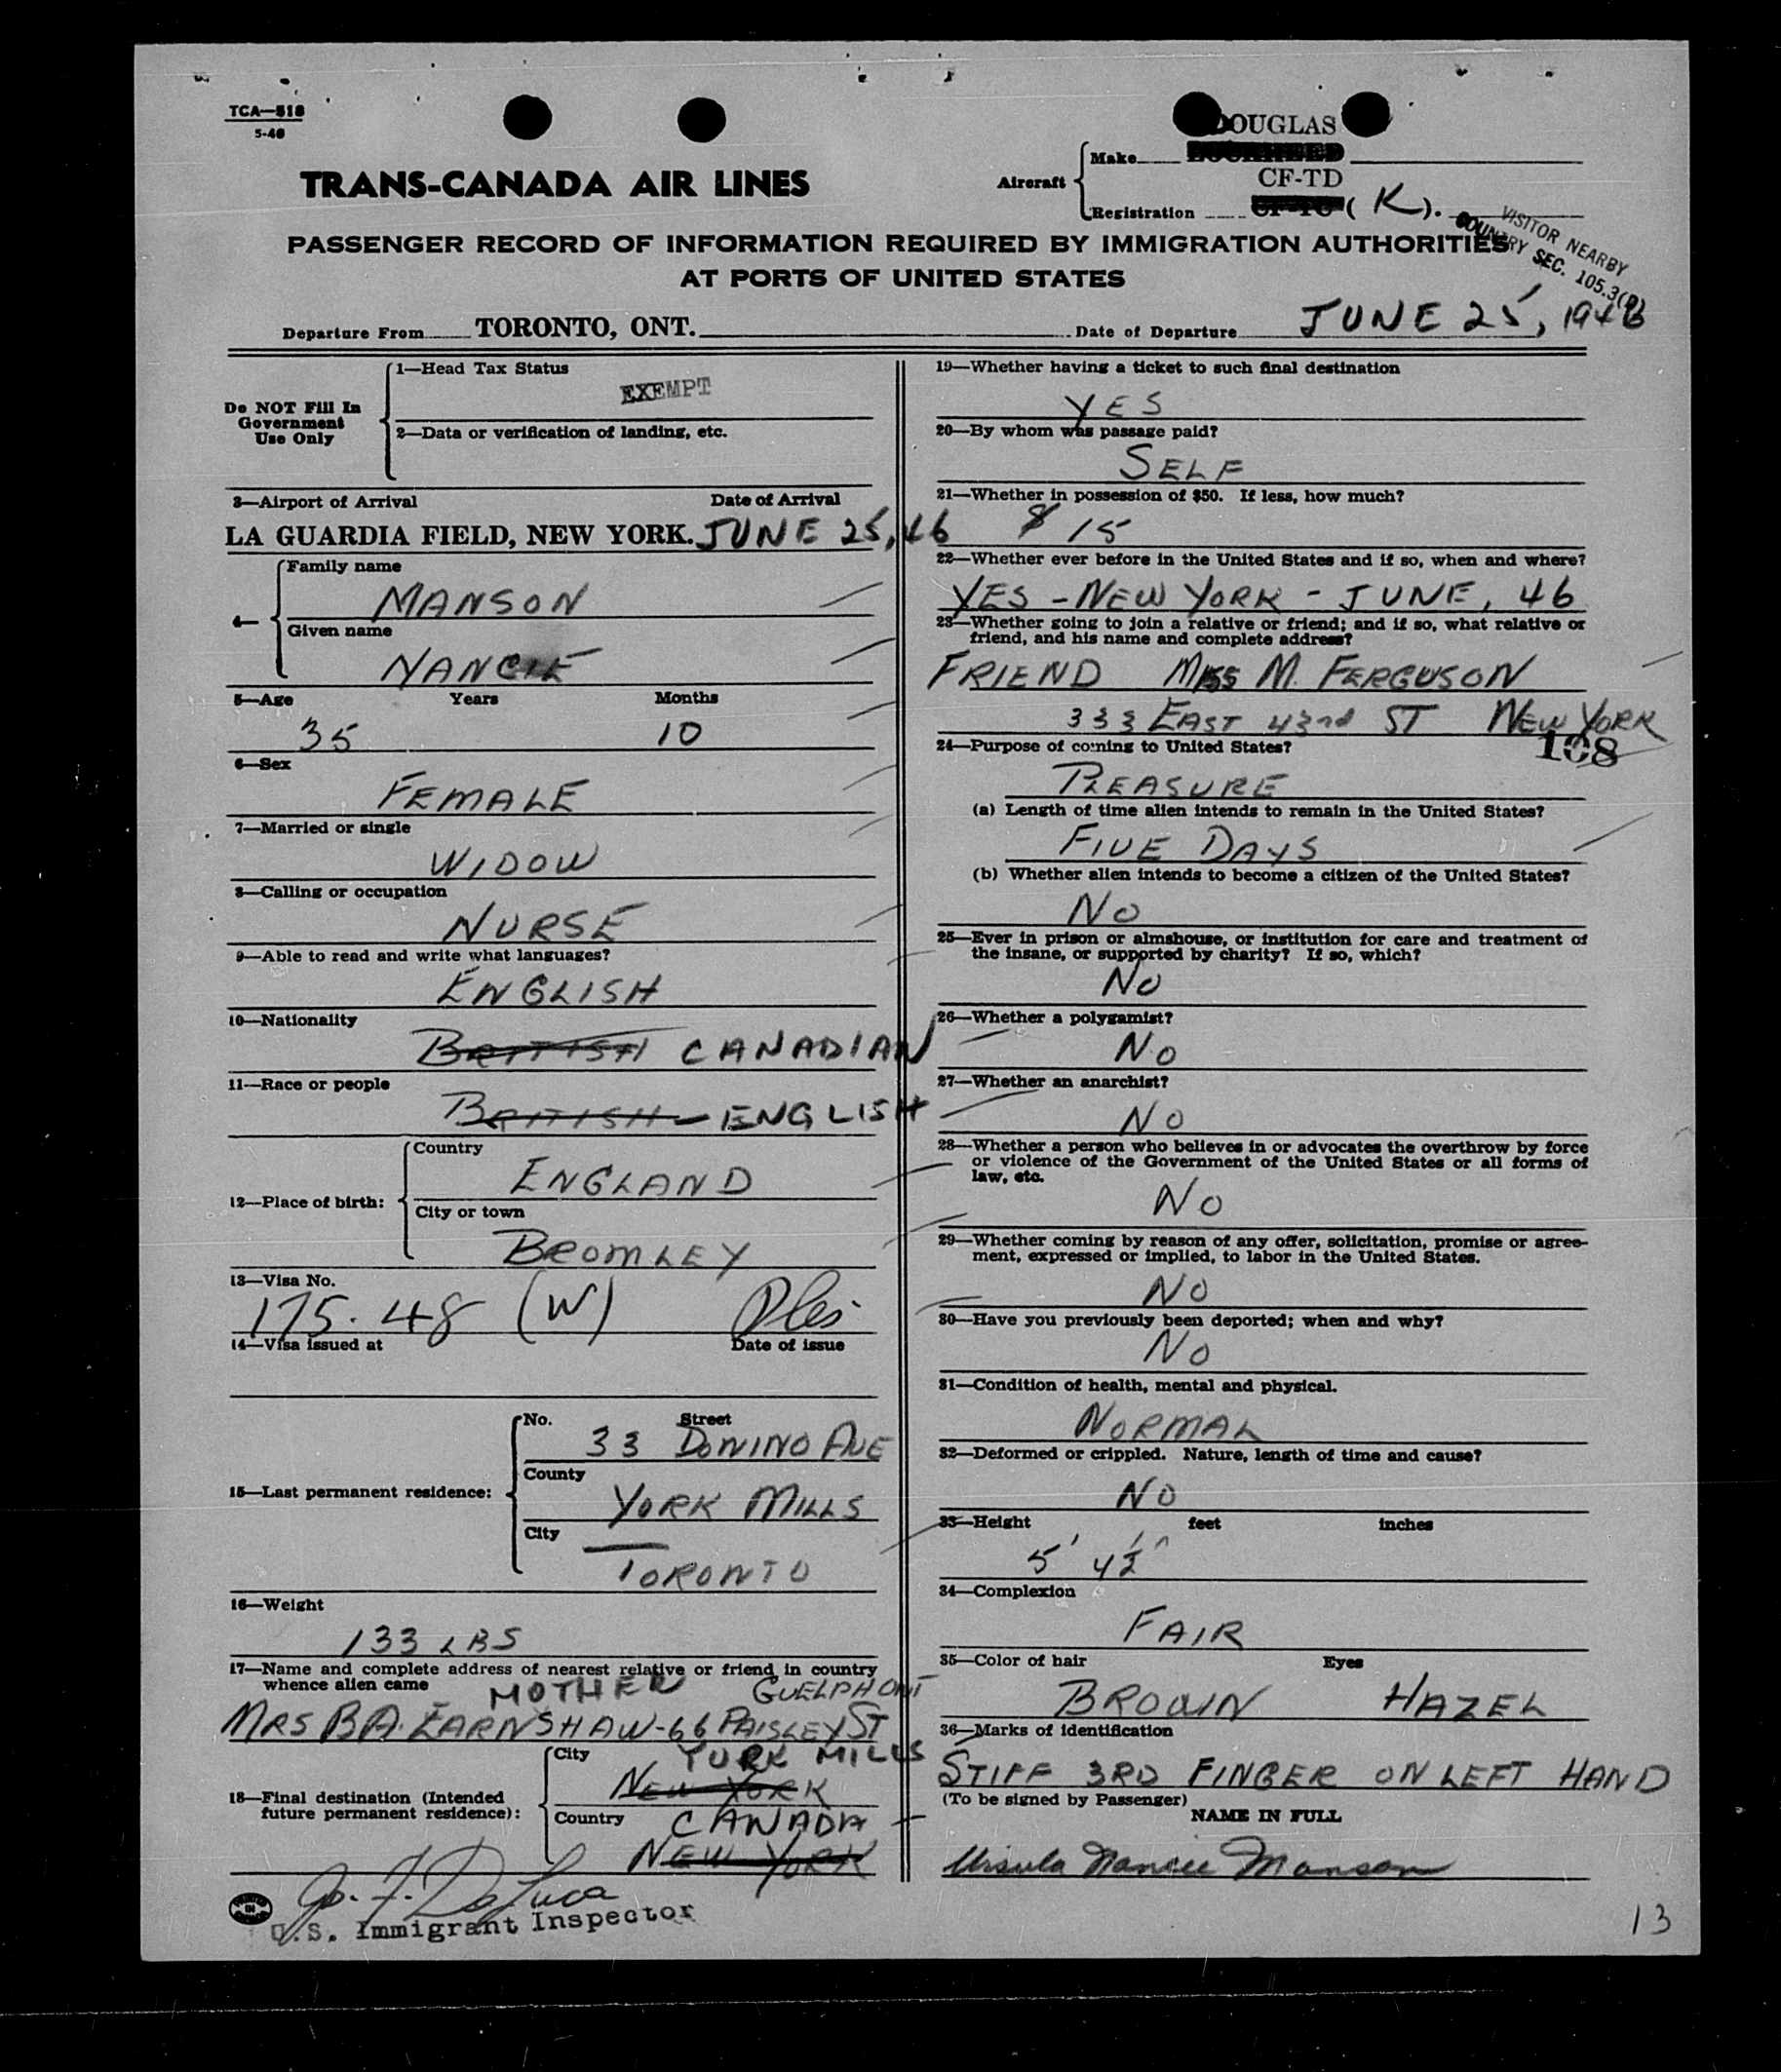 TCA—518
5-46
DOUGLAS
Make
TRANS-CANADA AIR LINES
Aircraft
CF-TD
Registration (K).
VISITOR NEARBY
COUNTRY SEC. 105.3(B)
PASSENGER RECORD OF INFORMATION REQUIRED BY IMMIGRATION AUTHORITIES
AT PORTS OF UNITED STATES
Departure From TORONTO, ONT. Date of Departure JUNE 25, 1946
Do NOT Fill In
Government
Use Only
1—Head Tax Status
EXEMPT
2—Data or verification of landing, etc.
3—Airport of Arrival Date of Arrival
LA GUARDIA FIELD, NEW YORK. JUNE 25, 46
4—
Family name
MANSON
Given name
NANCIE
5—Age Years Months
35 10
6—Sex
FEMALE
7—Married or single
WIDOW
8—Calling or occupation
NURSE
9—Able to read and write what languages?
ENGLISH
10—Nationality
BRITISH CANADIAN
11—Race or people
BRITISH ENGLISH
12—Place of birth:
Country
ENGLAND
City or town
BROMLEY
13—Visa No.
175.48 (W)
14—Visa issued at Date of issue
15—Last permanent residence:
No. Street
33 DONINO AVE
County
YORK MILLS
City
TORONTO
16—Weight
133 LBS
17—Name and complete address of nearest relative or friend in country
whence alien came
MOTHER GUELPH ONT
MRS B.A. EARNSHAW-66 PAISLEY ST
18—Final destination (Intended
future permanent residence):
City YORK MILLS
NEW YORK
Country CANADA
NEW YORK
Jo. F. DeLuca
U.S. Immigrant Inspector
19—Whether having a ticket to such final destination
YES
20—By whom was passage paid?
SELF
21—Whether in possession of $50. If less, how much?
$ 15
22—Whether ever before in the United States and if so, when and where?
YES - NEW YORK - JUNE, 46
23—Whether going to join a relative or friend; and if so, what relative or
friend, and his name and complete address?
FRIEND MISS M. FERGUSON
333 EAST 43rd ST NEW YORK
24—Purpose of coming to United States?
108
PLEASURE
(a) Length of time alien intends to remain in the United States?
FIVE DAYS
(b) Whether alien intends to become a citizen of the United States?
NO
25—Ever in prison or almshouse, or institution for care and treatment of
the insane, or supported by charity? If so, which?
NO
26—Whether a polygamist?
NO
27—Whether an anarchist?
NO
28—Whether a person who believes in or advocates the overthrow by force
or violence of the Government of the United States or all forms of
law, etc.
NO
29—Whether coming by reason of any offer, solicitation, promise or agree-
ment, expressed or implied, to labor in the United States.
NO
30—Have you previously been deported; when and why?
NO
31—Condition of health, mental and physical.
NORMAL
32—Deformed or crippled. Nature, length of time and cause?
NO
33—Height feet inches
5' 4½"
34—Complexion
FAIR
35—Color of hair Eyes
BROWN HAZEL
36—Marks of identification
STIFF 3RD FINGER ON LEFT HAND
(To be signed by Passenger)
NAME IN FULL
Ursula Nancie Manson
13